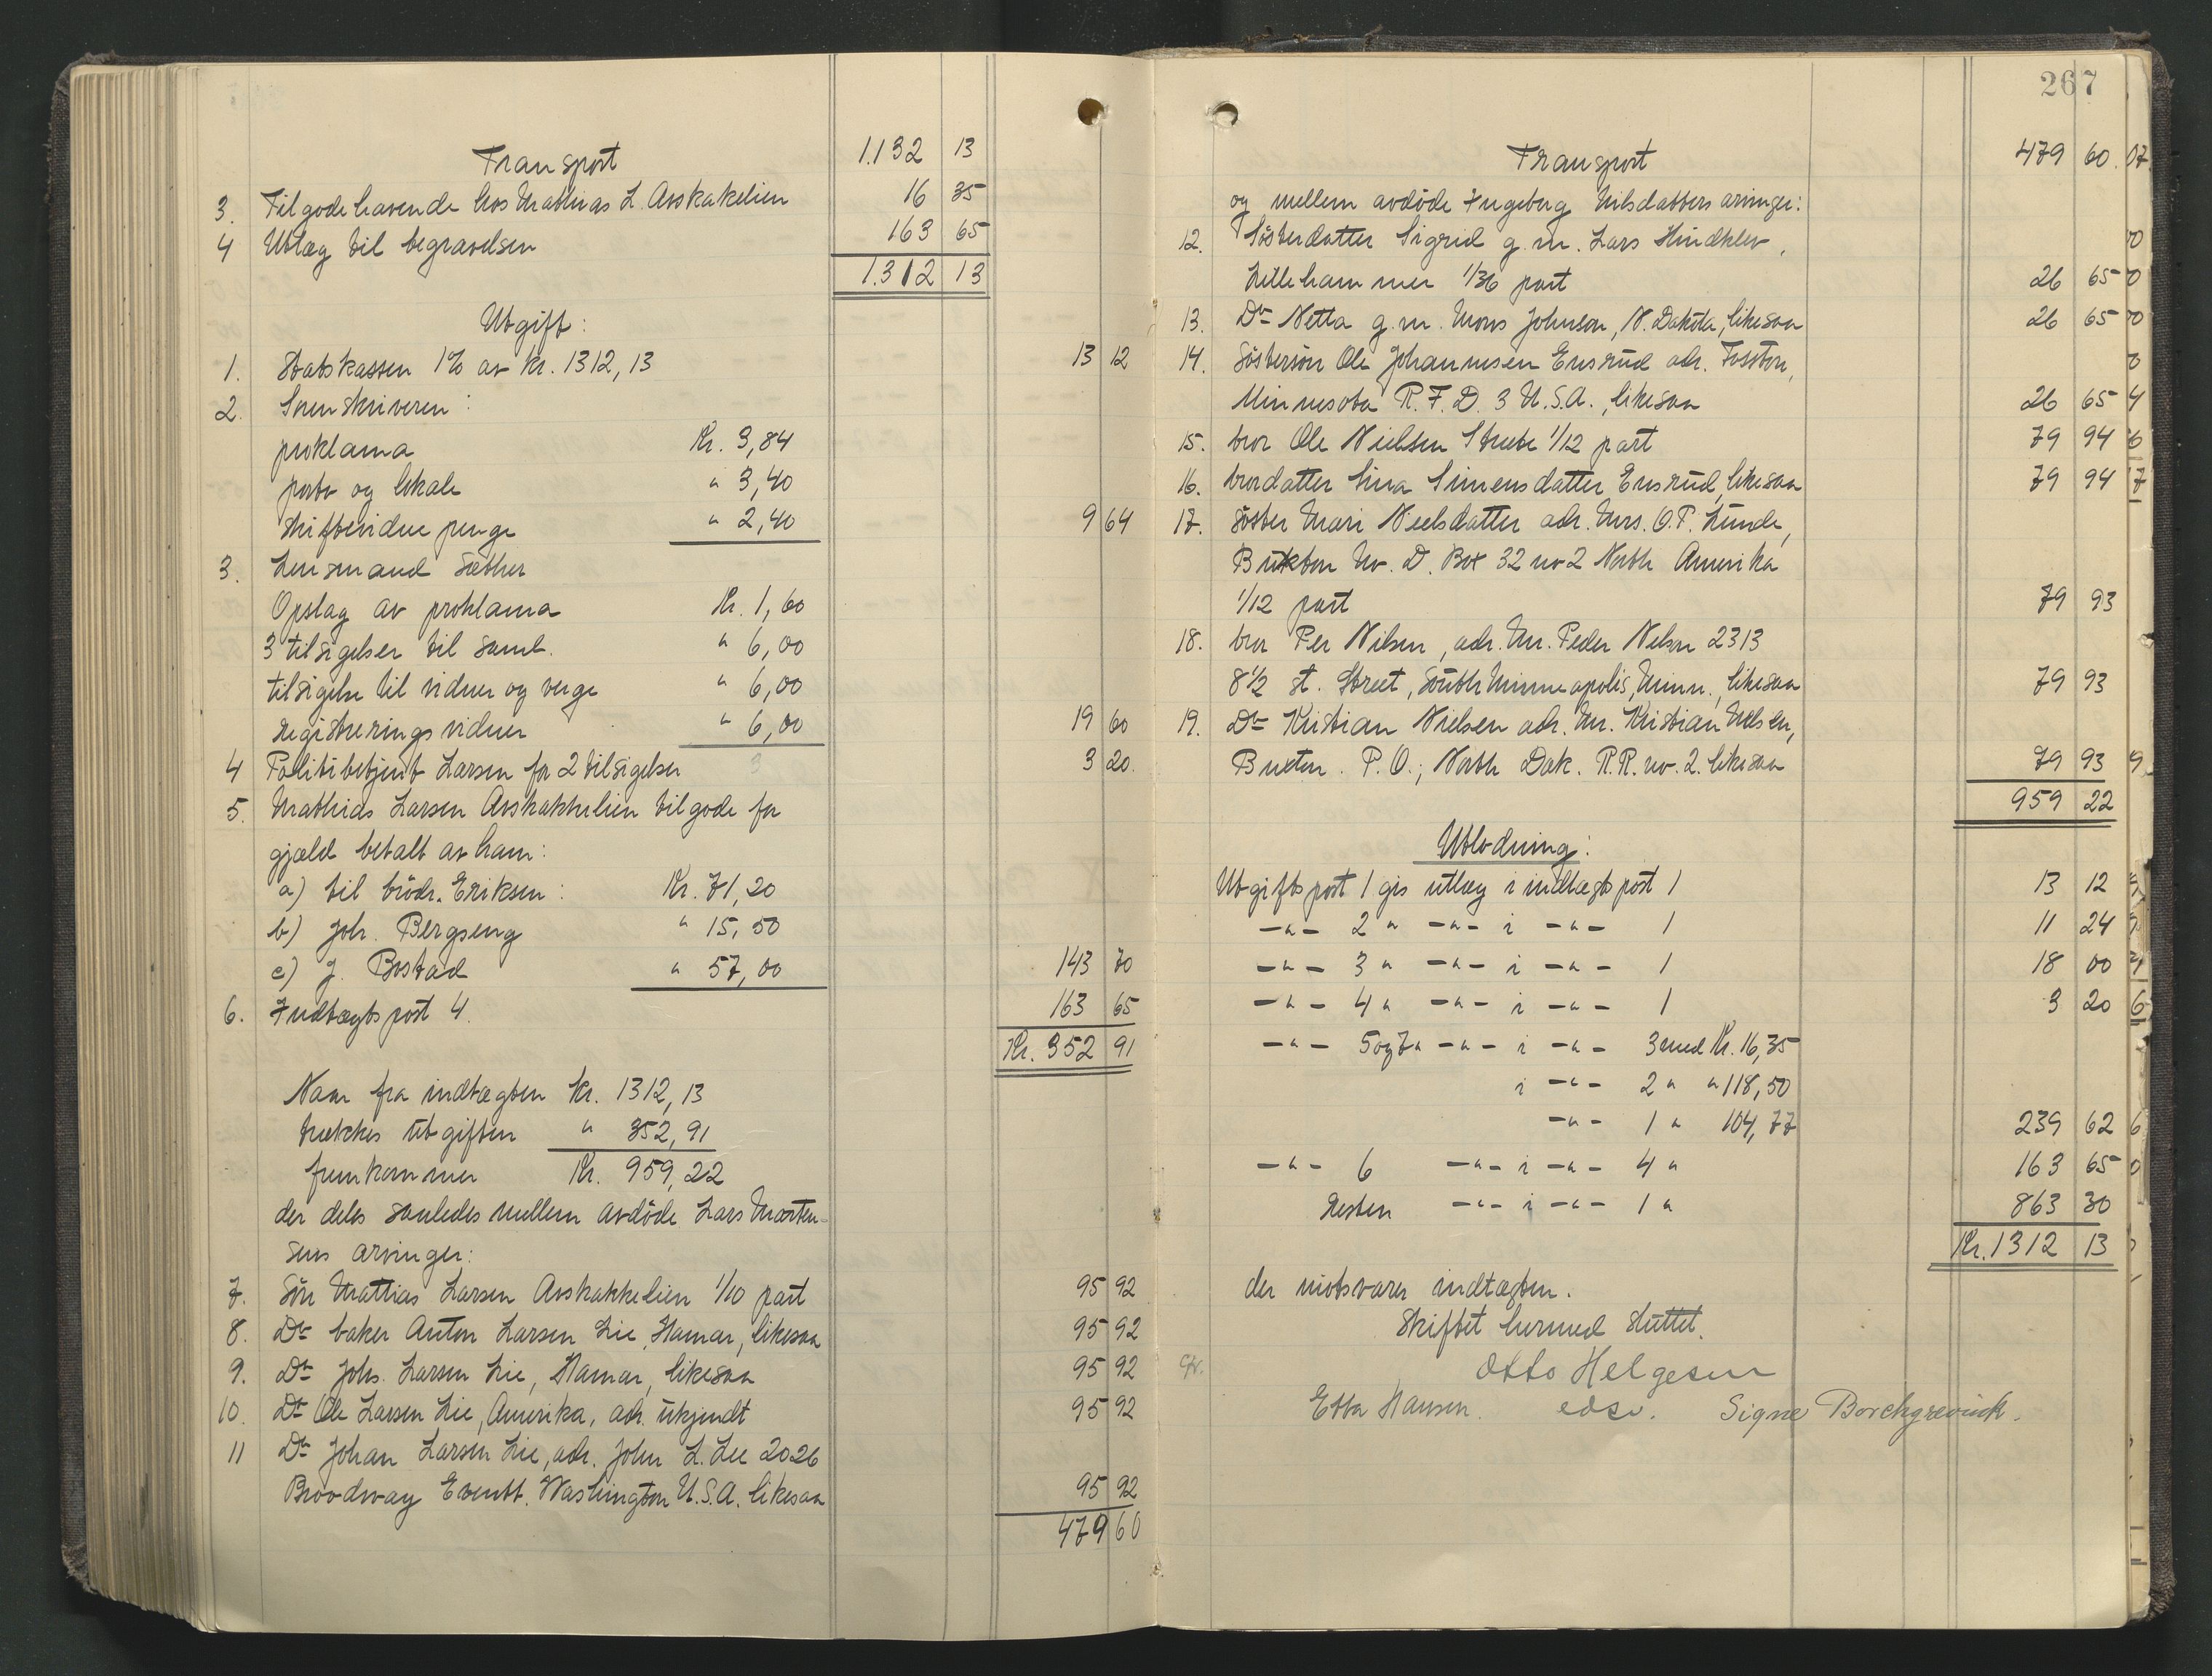 Transport 1.132 13
3. Tilgodehavende hos Mathias L. Avskakelien 16 35
4 Utlæg til begravelsen 163 65
1.312 13
Utgift:
1. Statskassen 1% av kr. 1312,13 13 12
2. Sorenskriveren:
proklama Kr. 3,84
porto og lokale " 3,40
skiftevidne penge " 2,40 9 64
3. Lensmand Sæther
Opslag av proklama Kr. 1,60
3 tilsigelser til saml. " 6,00
tilsigelse til vidner og verge " 6,00
registreringsvidner " 6,00 19 60
4 Politibetjent Larsen for 2 tilsigelser 3 20
5. Mathias Larsen Avskakkelien tilgode for
gjæld betalt av ham:
a) til brödr. Eriksen: Kr. 71,20
b) Joh. Bergseng " 15,50
c) J. Bostad " 57,00 143 70
6. Indtægtspost 4. 163 65
Kr. 352 91
Naar fra indtægten Kr. 1312,13
trækkes utgiften " 352,91
fremkommer Kr. 959,22
der deles saaledes mellem avdöde Lars Morten-
sens arvinger:
7. Sön Mattias Larsen Avskakkelien 1/10 part 95 92
8. Do baker Anton Larsen Lie, Hamar, likesaa 95 92
9. Do Johs. Larsen Lie, Hamar, likesaa 95 92
10. Do Ole Larsen Lie, Amerika, adr. ukjendt 95 92
11 Do Johan Larsen Lie, adr. John L. Lee 2026
Broodway Eventt. Washington U.S.A. likesaa 95 92
479 60
267
Transport 479 60
og mellem avdöde Ingeborg Nilsdatters arvinger:
12. Sösterdatter Sigrid g.m. Lars Hindklev,
Lillehammer 1/36 part 26 65
13. Do Netta g.m. Mons Johnson, N. Dakota, likesaa 26 65
14. Söstersön Ole Johannesen Ensrud adr. Fosston,
Minnesota R.F.D. 3 U.S.A., likesaa 26 65
15. bror Ole Nielsen Strete 1/12 part 79 94
16. brordatter Lina Simensdatter Ensrud, likesaa 79 94
17. söster Mari Nielsdatter adr. Mrs. O.P. Lunde,
Buxton No. D. Box 32 no 2 North Amerika
1/12 part 79 93
18. bror Per Nilsen, adr. Mr. Peder Nelson 2313
8 1/2 st. Street, South Minneapolis, Minn., likesaa 79 93
19. Do Kristian Nielsen adr. Mr. Kristian Nelsen,
Buxton. P.O.; North Dak. R.R. no. 2. likesaa 79 93
959 22
Utlodning:
Utgiftspost 1 gis utlæg i indtægtspost 1 13 12
-"- 2 " -"- i -"- 1 11 24
-"- 3 " -"- i -"- 1 18 00
-"- 4 " -"- i -"- 1 3 20
-"- 5 og 7 " -"- i -"- 3 med Kr. 16,35
i -"- 2 " " 118,50
-"- 1 " 104,77 239 62
-"- 6 -"- i -"- 4 " 163 65
Resten -"- i -"- 1 " 863 30
Kr. 1312 13
der motsvarer indtægten.
Skiftet hermed sluttet.
Otto Helgesen
edsv.
Etta Hansen. Signe Borchgrevink.